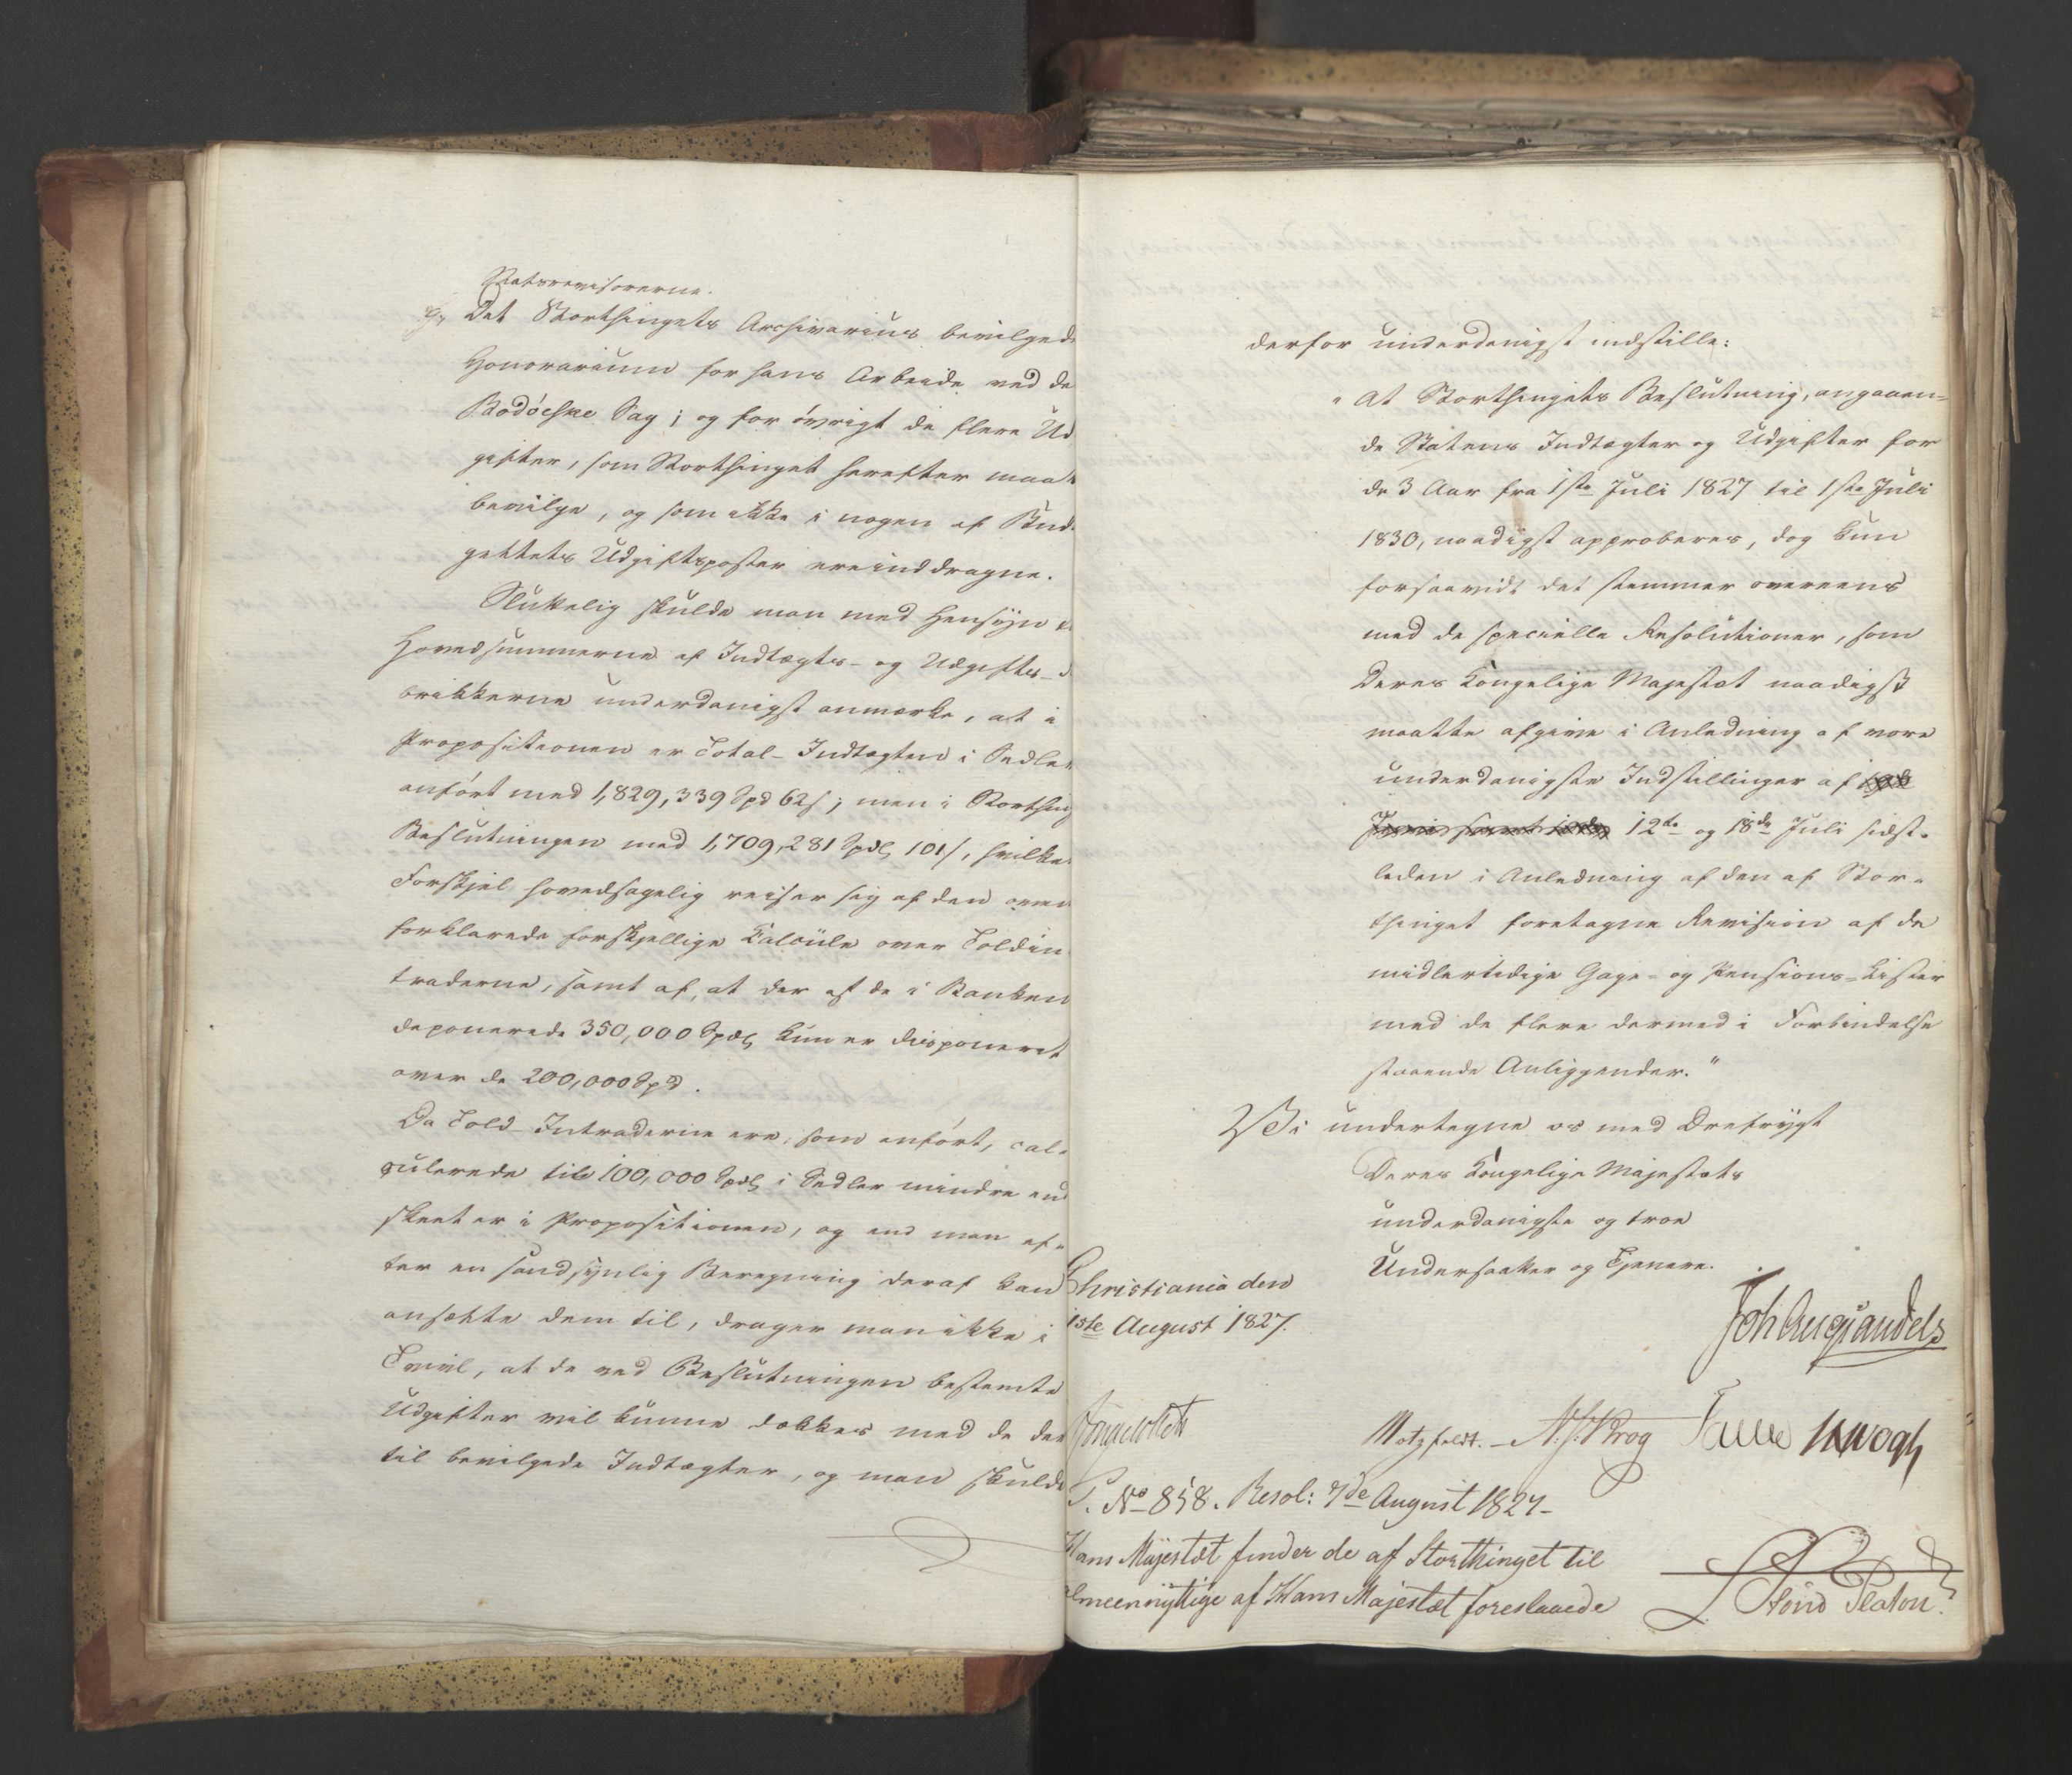 Statsrevisorerne.
g, Det Storthingets Archivarius bevilgede
Honorarium for hans Arbeide ved de
Bodöeske Sag; og for övrigt de flere Ud
gifter, som Storthinget herefter maat
bevilge, og som ikke i nogen af Bud-
gettets Udgiftsposter ere inddragne.
Sluttelig skulde man med Hensyn
Hovedsummerne af Indtægts- og Udgifts-
brikkerne underdanigst anmærke, at i
Propositionen er Total-Indtægten i Sedler
anfört med 1,829,339 Spd 62 s; men i Storthing
Beslutningen med 1,709,281 Spd 101 s, hvilken
Forskjel hovedsagelig reiser sig af den oven
forklarede forskjellige Calcüle over Toldin
traderne, samt af, at der af de i Banken
deponerede 350,000 Spd kun er disponeret
over de 200,000 Spd.
Da Told-Intraderne ere, som anfört, cal-
culerede til 100,000 Spd i Sedler mindre end
skeet er i Propositionen, og end man ef-
ter en sandsynlig Beregning deraf kan
ansætte dem til, drager man ikke i
Tvivl, at de ved Beslutningen bestemte
Udgifter vil kunne dækkes med de der
til bevilgede Indtægter, og man skulde
derfor underdanigst indstille:
"At Storthingets Beslutning, angaaen-
de Statens Indtægter og Udgifter for
de 3 Aar fra 1ste Juli 1827 til 1ste Juli
1830, naadigst approberes, dog kun
forsaavidt det stemmer overeens
med de specielle Resolutioner, som
Deres Kongelige Majestæt naadigst
maatte afgive i Anledning af vore
underdanigste Indstillinger af
12te og 18de Juli sidst-
leden i Anledning af den af Stor-
thinget foretagne Revision af de
midlertidige Gage- og Pensions-Lister
med de flere dermed i Forbindelse
staaende Anliggender."
Vi undertegne os med Drefrygt
Deres Kongelige Majestæts
underdanigste og troe
Undersaatter og Tjenere.
Christiania den
1ste August 1827.
Joh Aug Sandels
Motzfeldt. - N. J. Krog Fasting
P. No 858. Resol: 7de August 1827-
Hans Majestæt finder de af Storthinget til
almeennyttige af Hans Majestæt foreslaaede